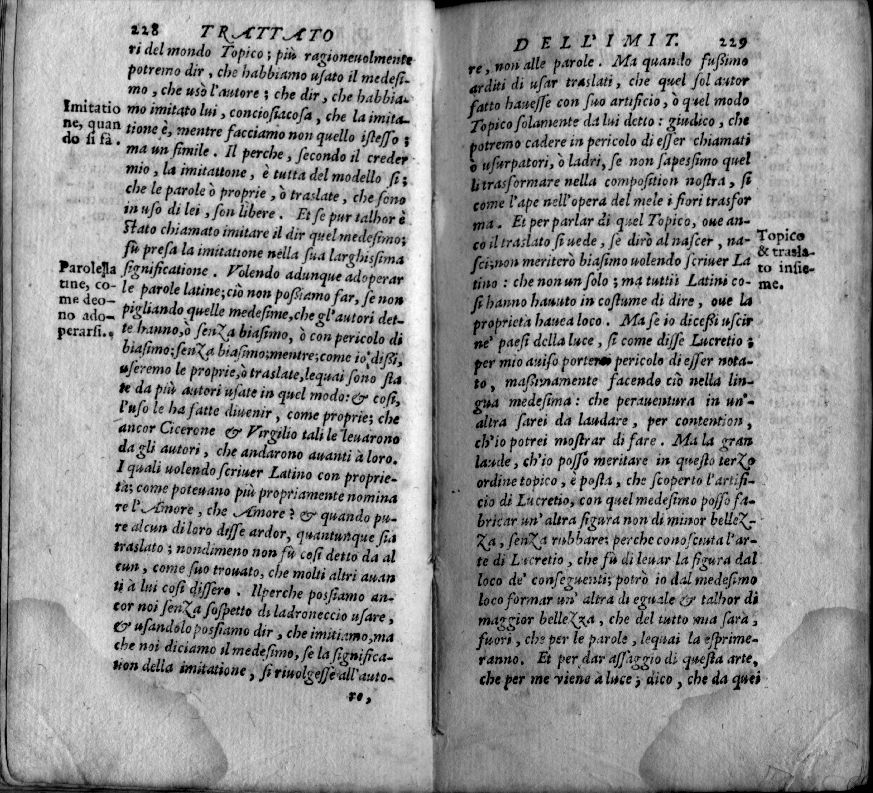 228 TRATTATO
ri del mondo Topico; più ragioneuolmente
potremo dir, che habbiamo usato il medesi-
mo, che usò l'autore; che dir, che habbia-
mo imitato lui, conciosiacosa, che la imita-
tione è, mentre facciamo non quello istesso;
ma un simile. Il perche, secondo il creder
mio, la imitatione, è tutta del modello sì;
che le parole ò proprie, ò traslate, che sono
in uso di lei, son libere. Et se pur talhor è
stato chiamato imitare il dir quel medesimo;
fù presa la imitatione nella sua larghissima
significatione. Volendo adunque adoperar
le parole latine; ciò non possiamo far, se non
pigliando quelle medesime, che gl'autori det-
te hanno, ò senza biasimo, ò con pericolo di
biasimo; senza biasimo, mentre; come io dissi,
useremo le proprie, ò traslate, lequai sono sta
te da più autori usate in quel modo: & così,
l'uso le ha fatte diuenir, come proprie; che
ancor Cicerone & Virgilio tali le leuarono
da gli autori, che andarono auanti à loro.
I quali uolendo scriuer Latino con proprie-
tà; come poteuano più propriamente nomina
re l'Amore, che Amore? & quando pu-
re alcun di loro disse ardor, quantunque sia
traslato; nondimeno non fù così detto da al
cun, come suo trouato, che molti altri auan
ti à lui così dissero. Ilperche possiamo an-
cor noi senza sospetto di ladroneccio usare,
& usandolo possiamo dir, che imitiamo, ma
che noi diciamo il medesimo, se la significa-
tion della imitatione, si riuolgesse all'auto-
re,
Imitatio
ne, quan
do si fà.
Parole la
tine, co-
me deo-
no ado-
perarsi.
DELL'IMIT. 229
re, non alle parole. Ma quando fussimo
arditi di usar traslati, che quel sol autor
fatto hauesse con suo artificio, ò quel modo
Topico solamente da lui detto: giudico, che
potremo cadere in pericolo di esser chiamati
ò usurpatori, ò ladri, se non sapessimo quel
li trasformare nella composition nostra, sì
come l'ape nell'opera del mele i fiori trasfor
ma. Et per parlar di quel Topico, oue an-
co il traslato si uede, se dirò al nascer, na-
sci; non meriterò biasimo uolendo scriuer La
tino: che non un solo; ma tutti i Latini co-
sì hanno hauuto in costume di dire, oue la
proprietà hauea loco. Ma se io dicessi uscir
ne' paesi della luce, sì come disse Lucretio;
per mio auiso portero pericolo di esser nota-
to, massimamente facendo ciò nella lin-
gua medesima: che perauentura in un'-
altra sarei da laudare, per contention,
ch'io potrei mostrar di fare. Ma la gran
laude, ch'io posso meritare in questo terzo
ordine topico, è posta, che scoperto l'artifi-
cio di Lucretio, con quel medesimo posso fa-
bricar un'altra figura non di minor bellez-
za, senza rubbare; perche conosciuta l'ar-
te di Lucretio, che fù di leuar la figura dal
loco de' conseguenti; potrò io dal medesimo
loco formar un' altra di eguale & talhor di
maggior bellezza, che del tutto mia sarà,
fuori, che per le parole, lequai la esprime-
ranno. Et per dar assaggio di questa arte,
che per me viene à luce; dico, che da quei
Topico
& trasla-
to insie-
me.